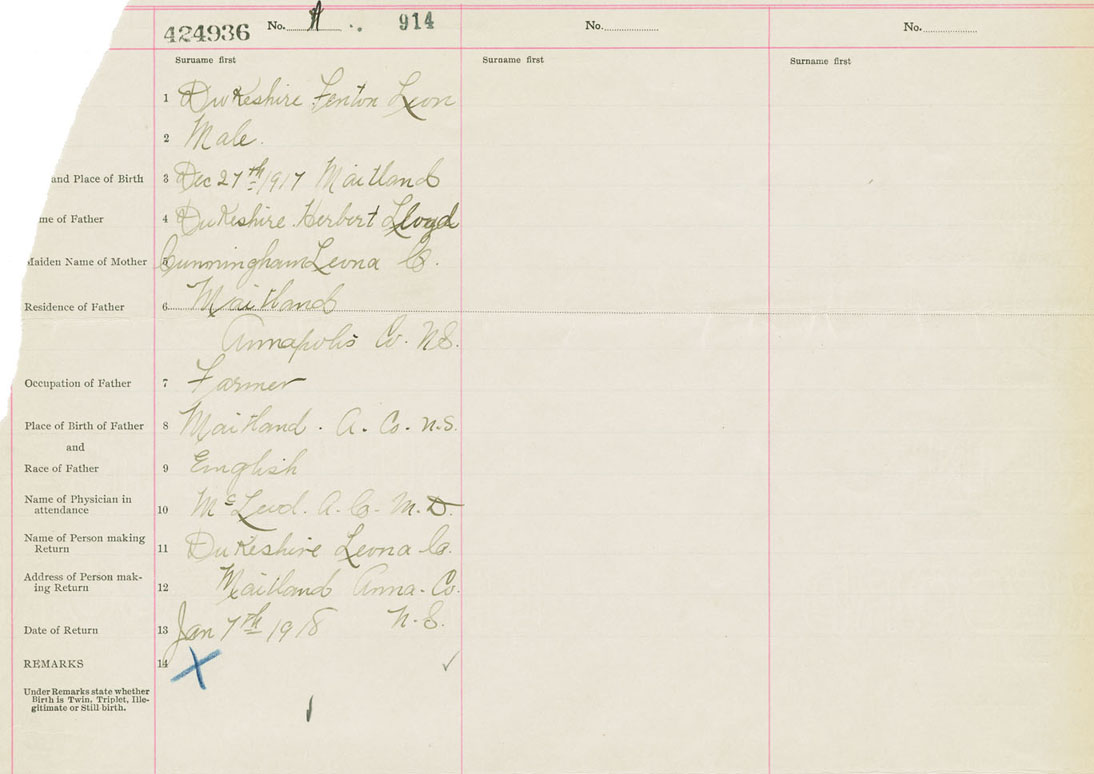 424936 No. A 914 No. No.
Surname first Surname first Surname first
1 Dukeshire Fenton Leon
2 Male.
and Place of Birth 3 Dec 27th 1917 Maitland
me of Father 4 Dukeshire Herbert Lloyd
Maiden Name of Mother 5 Cunningham Leona B.
Residence of Father 6 Maitland
Annapolis Co. N.S.
Occupation of Father 7 Farmer
Place of Birth of Father 8 Maitland. A. Co. N.S.
and
Race of Father 9 English
Name of Physician in
attendance 10 McLeod. A. B. M.D.
Name of Person making
Return 11 Dukeshire Leona B.
Address of Person mak-
ing Return 12 Maitland Anna. Co.
N.S.
Date of Return 13 Jan 7th 1918
REMARKS 14
Under Remarks state whether
Birth is Twin, Triplet, Ille-
gitimate or Still birth.